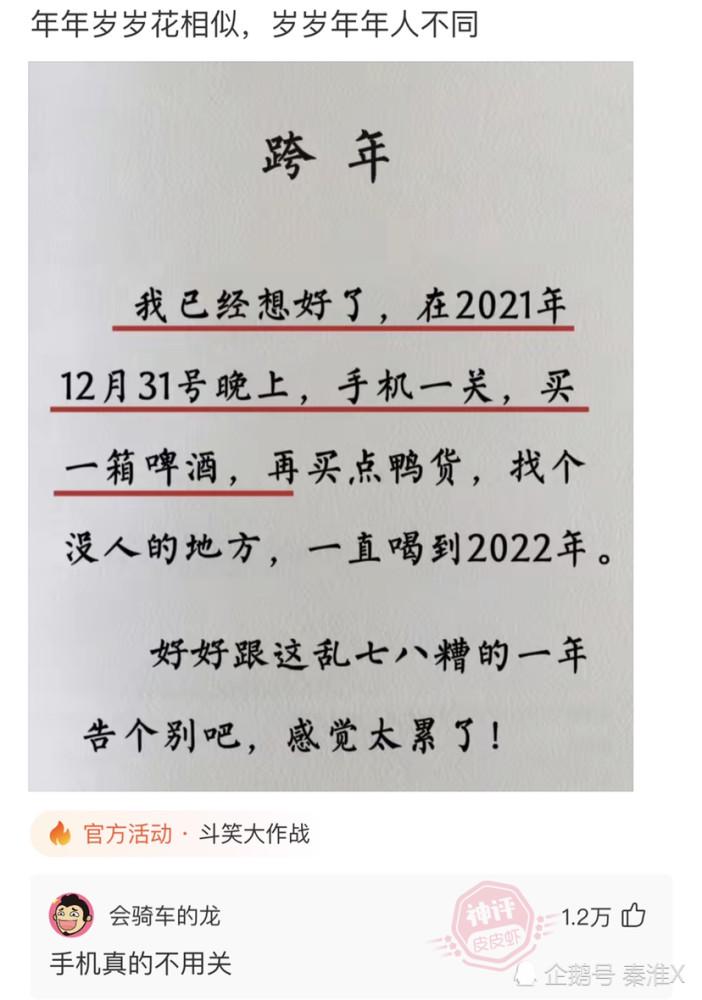 年年岁岁花相似，岁岁年年人不同
跨 年
我已经想好了，在2021年
12月31号晚上，手机一关，买
一箱啤酒，再买点鸭货，找个
没人的地方，一直喝到2022年。
好好跟这乱七八糟的一年
告个别吧，感觉太累了！
官方活动 · 斗笑大作战
会骑车的龙
神评
皮皮虾
1.2万
手机真的不用关
企鹅号 秦淮X